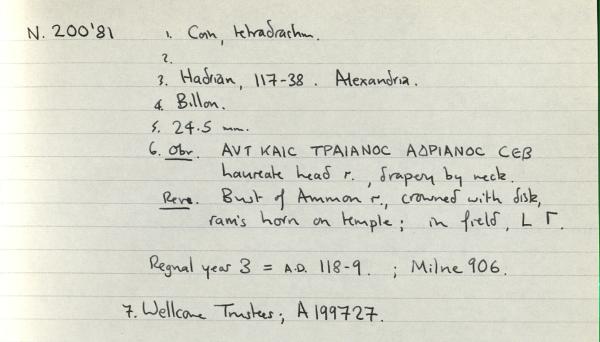 N. 200'81
1. Coin, tetradrachm.
2.
3. Hadrian, 117-38. Alexandria.
4. Billon.
5. 24.5 mm.
6. Obv. ΑVΤ ΚΑΙC ΤΡΑΙΑΝΟC ΑΔΡΙΑΝΟC CЄΒ
laureate head r., drapery by neck.
Reve. Bust of Ammon r., crowned with disk,
ram's horn on temple; in field, L Γ.
Regnal year 3 = A.D. 118-9. ; Milne 906.
7. Wellcome Trustees; A199727.